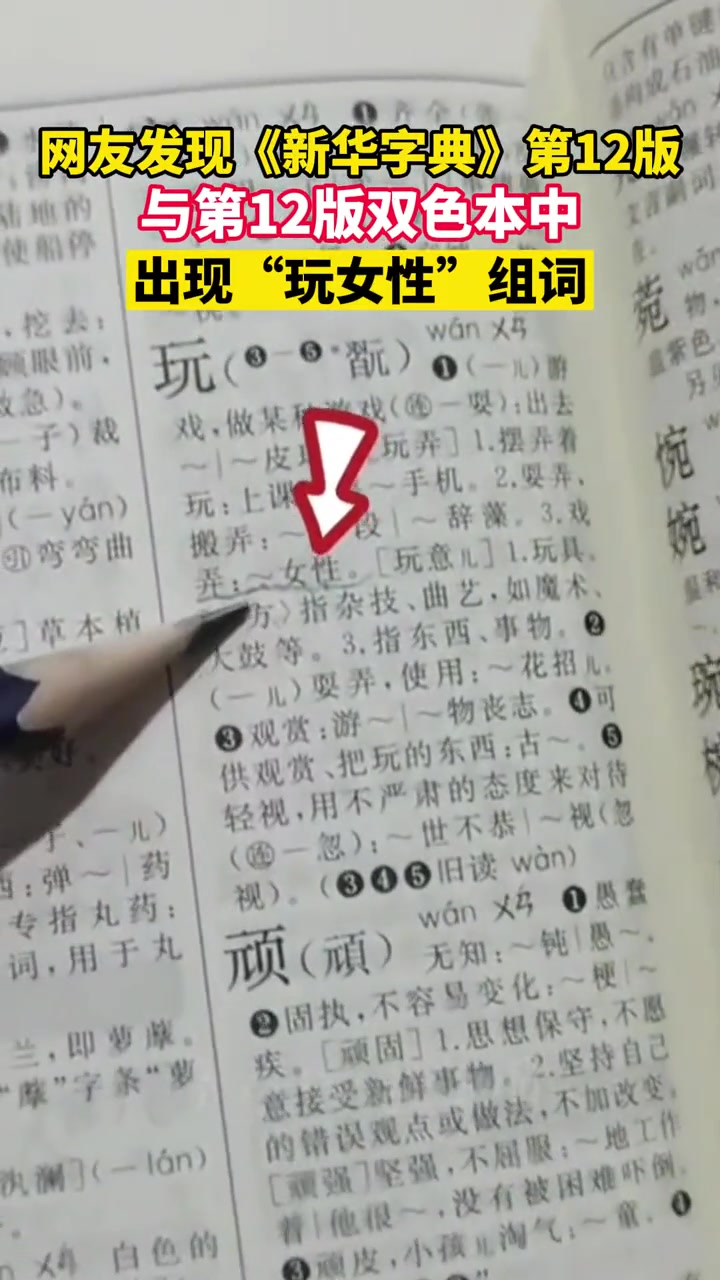 网友发现《新华字典》第12版
与第12版双色本中
出现“玩女性”组词
陆地的
使船停
挖去：
顾眼前，
救急）。
子）裁
布料。
（一yán）
弯弯曲
］草本植
子、一儿）
西：弹～｜药
专指丸药：
词，用于丸
兰，即萝藦。
“藦”字条“萝
澜］（一lán）
wán ㄨㄢˊ 白色的
wán ㄨㄢˊ
玩（❸-❺*翫） ❶（一儿）游
戏，做某种游戏（连一耍）：出去
～｜～皮 玩弄］1.摆弄着
玩：上课 ～手机。2.耍弄、
搬弄：～ 段｜～辞藻。3.戏
弄：～女性。［玩意儿］1.玩具。
方〉指杂技、曲艺，如魔术、
大鼓等。3.指东西、事物。❷
（一儿）耍弄，使用：～花招儿。
❸观赏：游～｜～物丧志。❹可
供观赏、把玩的东西：古～。❺
轻视，用不严肃的态度来对待
（连一忽）：～世不恭｜～视（忽
视）。（❸❹❺旧读 wàn）
wán ㄨㄢˊ ❶愚蠢
顽（頑） 无知：～钝｜愚～。
❷固执，不容易变化：～梗｜～
疾。［顽固］1.思想保守，不愿
意接受新鲜事物。2.坚持自己
的错误观点或做法，不加改变。
［顽强］坚强，不屈服：～地工作
着｜他很～，没有被困难吓倒。
❸顽皮，小孩儿淘气：～童。❹
含有单键
构成石油
菀
物，
蓝紫色
惋
婉
琬